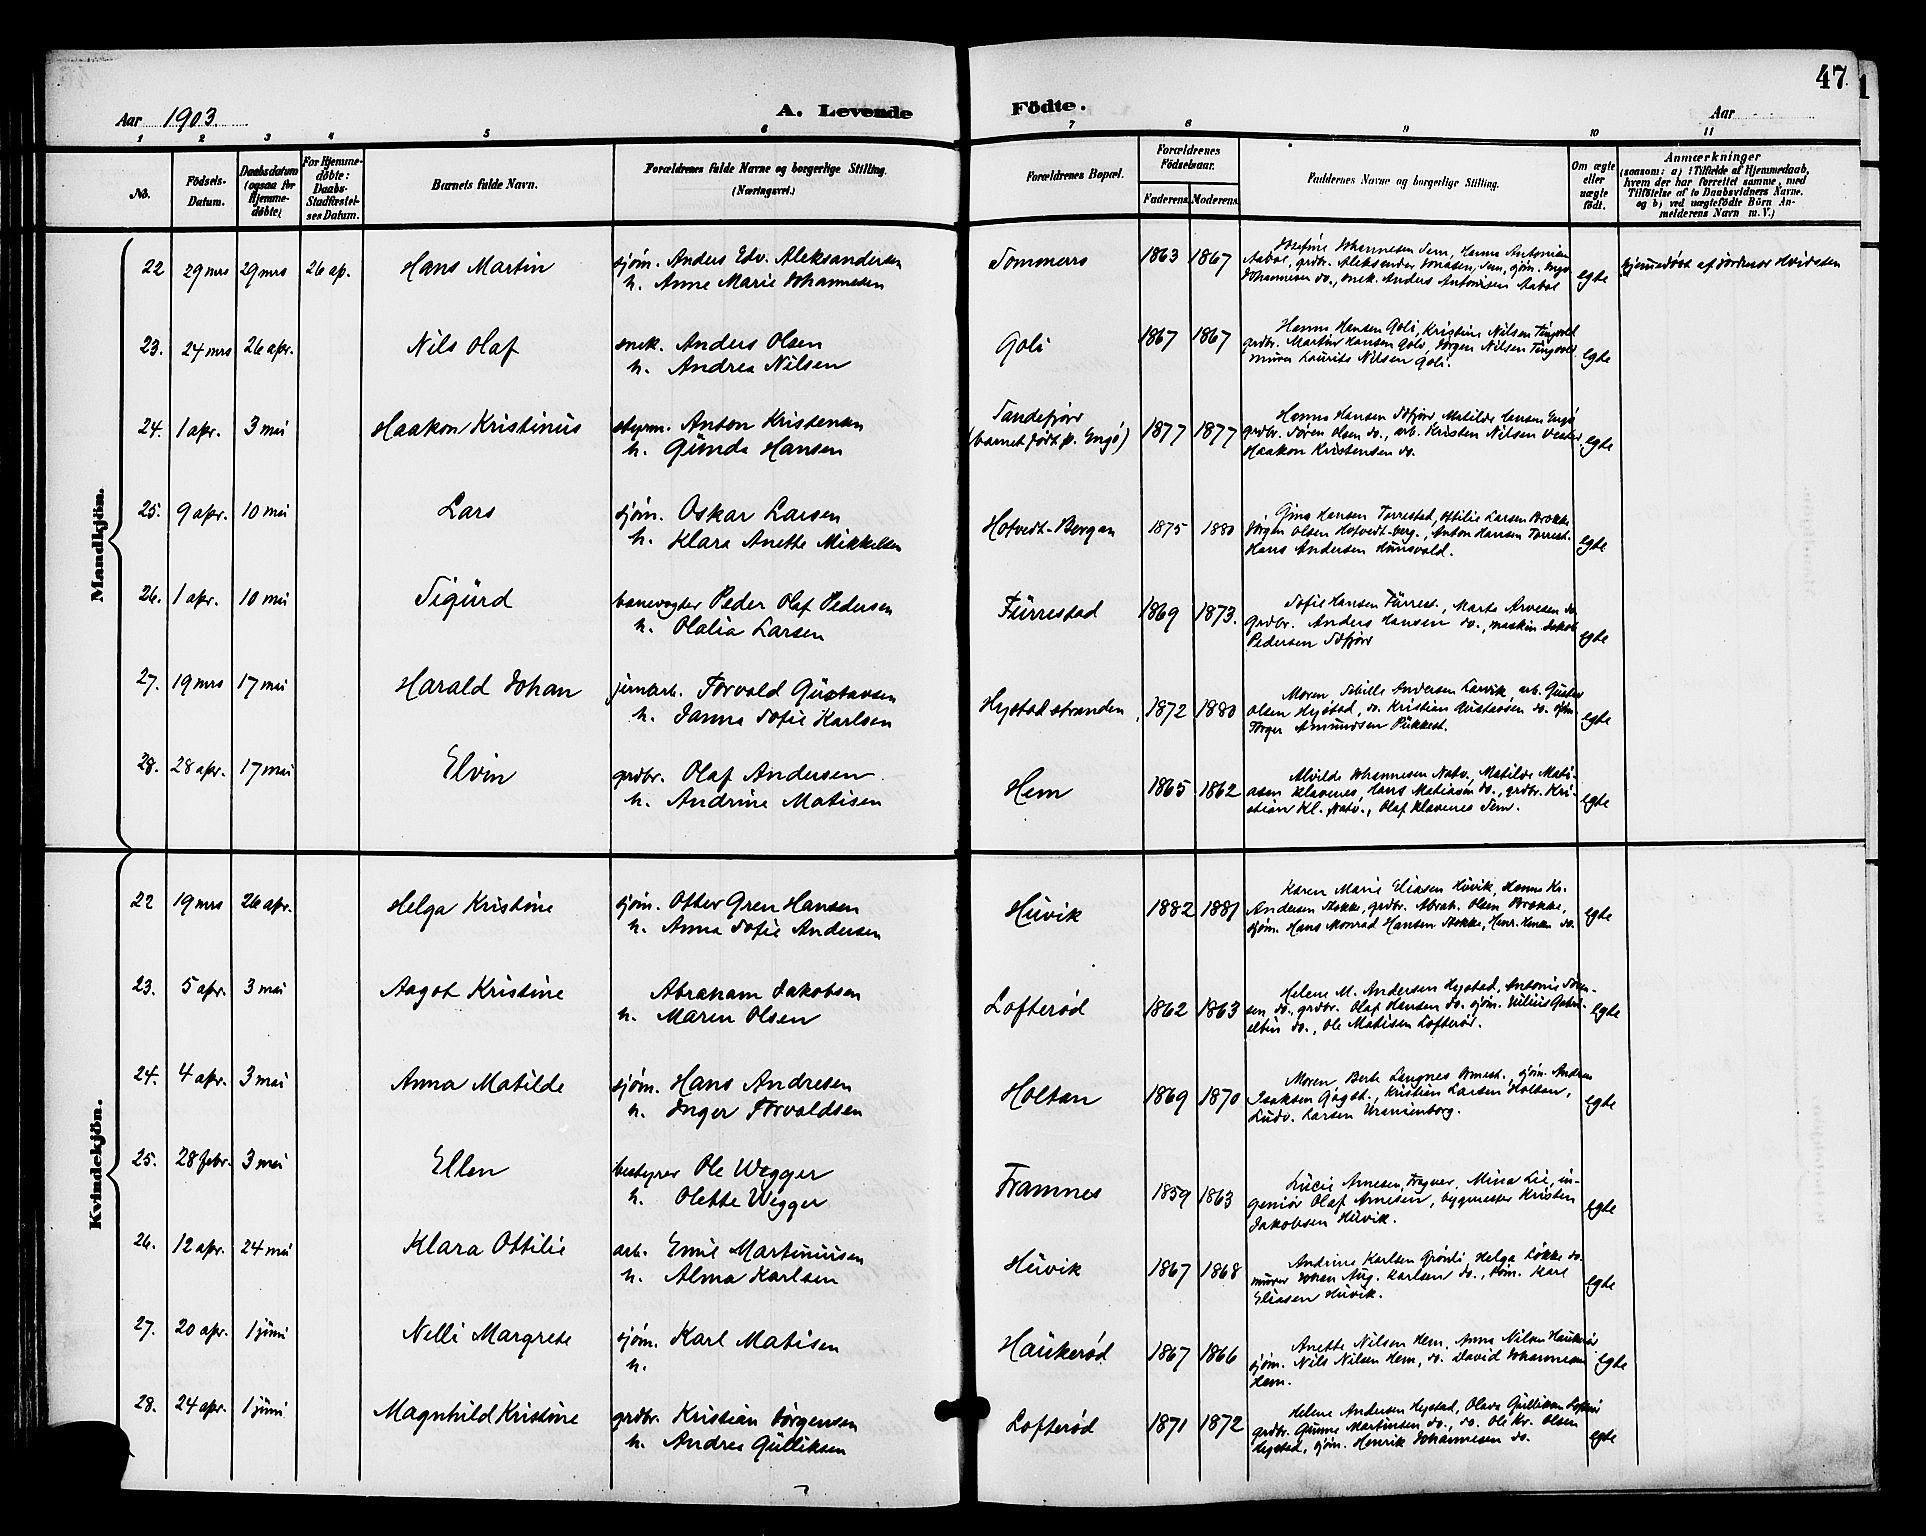 47
Aar 1903.
A. Levende Födte.
Aar
1 2 3 4 5 6 7 8 9 10 11
No.
Födsels-Datum.
Daabsdatum (ogsaa for Hjemme-døbte)
For Hjemme-døbte: Daabs-Stadfæstel-ses Datum.
Barnets fulde Navn.
Forældrenes fulde Navne og borgerlige Stilling.
(Næringsvei.)
Forældrenes Bopæl.
Forældrenes Födselsaar.
Faderens. Moderens.
Faddernes Navne og borgerlige Stilling.
Om ægte eller uægte født.
Anmærkninger
(saasom: a) i Tilfælde af Hjemmedaab,
hvem der har forrettet samme, med
Tilföielse af to Daabsvidners Navne.
og b) ved uægtefödte Börn An-
melderens Navn m. V.)
Mandkjön.
22 29 mrs 29 mrs 26 ap. Hans Martin
sjöm. Anders Edv. Aleksandersen
h. Anne Marie Johannesen
1863 1867
Josefine Johannesen Sem, Hanna Antonian
Aabol, grdbr. Aleksander Jonasen, Sem, sjöm.
Johannesen do., snek. Anders Antonisen Aabol
egte
hjemmedøbt af jordmor Hvidsten
23. 24 mrs 26 apr. Nils Olaf
snek. Anders Olsen
h. Andrea Nilsen
Goli
1867 1867
Hanna Hansen Goli, Kristine Nilsen Tingvold
grdbr. Martin Hansen Goli, Jörgen Nilsen Tingvold
murer Laurits Nilsen Goli.
egte
24. 1 apr. 3 mai Haakon Kristinus
styrm. Anton Kristensen
h. Günda Hansen
Sandefjör
(barnet födt p. Engö)
1877 1877
Hanna Hansen Sdfjör, Matilde Hansen Engö
grdbr. Sören Olsen do., arb. Kristen Nilsen Vester.
Haakon Kristensen do.
egte
25. 9 apr. 10 mai Lars
sjöm. Oskar Larsen
h. Klara Anette Mikkelsen
Hotvedt-Bergan
1875 1880
Gina Hansen Torrestad, Ottilie Larsen Brokke
Jörgen Olsen Hotvedt-berg., Anton Hansen Torrest.
Hans Andersen Hunsvald.
egte
26. 1 apr. 10 mai Sigürd
banevogter Peder Olaf Pedersen
h. Olalia Larsen
Fürrestad
1869 1873.
Sofie Hansen Fürrest., Marte Arvesen do.
grdbr. Anders Hansen do., maskin. Jakob
Pedersen Sdfjör
egte
27. 19 mrs 17 mai Harald Johan
jernarb. Torvald Güstavsen
h. Janna Sofie Karlsen
Hystadstranden
1872 1880
Moren Sibille Andersen Larvik, arb. Gustav
Olsen Hystad, do. Kristian Gustavsen do. sjöm.
Torger Amundsen Pükkest.
egte
28. 28 apr. 17 mai Elvin
grdbr. Olaf Andersen
h. Andrine Matisen
Hem
1865 1862
Alvilde Johannesen Natv., Matilde Mati-
asen Klavenes, Hans Matiasen do., grdbr. Kri-
stian Kl. Natv., Olaf Klavenes Sem.
egte
Kvindekjön.
22 19 mrs 26 apr. Helga Kristine
sjöm. Otter Gren Hansen
h. Anna Sofie Andersen
Hüvik
1882 1881
Karen Marie Eliasen Hüvik, Hanna Kr.
Andersen Stokke, grdbr. Abrah. Olsen Brokke,
sjöm. Hans Monrad Hansen Stokke, Henr. Hansen do.
egte
23. 5 apr. 3 mai Aagot Kristine
Abraham Jakobsen
h. Maren Olsen
Lofterød
1862 1863
Helene M. Andersen Hystad, Antonie Sören-
sen do., grdbr. Olaf Hansen do. sjöm. Julius Gabri-
elsen do., Ole Matisen Lofterød.
egte
24. 4 apr. 3 mai Anna Matilde
sjöm. Hans Andresen
h. Inger Torvaldsen
Holtan
1869 1870
Moren, Berte Langnes Ormest. sjöm. Andreas
Isaksen Gögst., Kristian Larsen Holtan,
Ludv. Larsen Uranienborg.
egte
25. 28 febr. 3 mai Ellen
bestyrer Ole Wegger
h. Olette Wegger
Framnes
1859 1863
Lucie Arnesen, Tragver, Mina Lie, in-
geniör Olaf Arnesen, bygmester Kristen
Jakobsen Hüvik.
egte
26. 12 apr. 24 mai Klara Ottilie
arb. Emil Martiniusen
h. Alma Karlsen
Hüvik
1867 1868
Andrine Karlsen Grönli, Helga Løkke do.
murer Johan Aug. Karlsen do., töm. Karl
Eliasen Hüvik.
egte
27. 20 apr. 1 juni Nelli Margrete
sjöm. Karl Matisen
h.
Haükerød
1867 1866
Anette Nilsen Hem, Anna Nilsen Haükerød
sjöm. Nils Nilsen Hem, do. David Johannesen
Hem.
egte
28. 24 apr. 1 juni Magnhild Kristine
grdbr. Kristian Jörgensen
h. Andrea Gülliksen
Lofterød
1871 1872
Helene Andersen Hystad, Olava Gülliksen Lofterød
grdbr. Gunne Martinsen do., do. Ole Kr. Olsen
Hystad, sjöm. Henrik Johannesen do.
egte